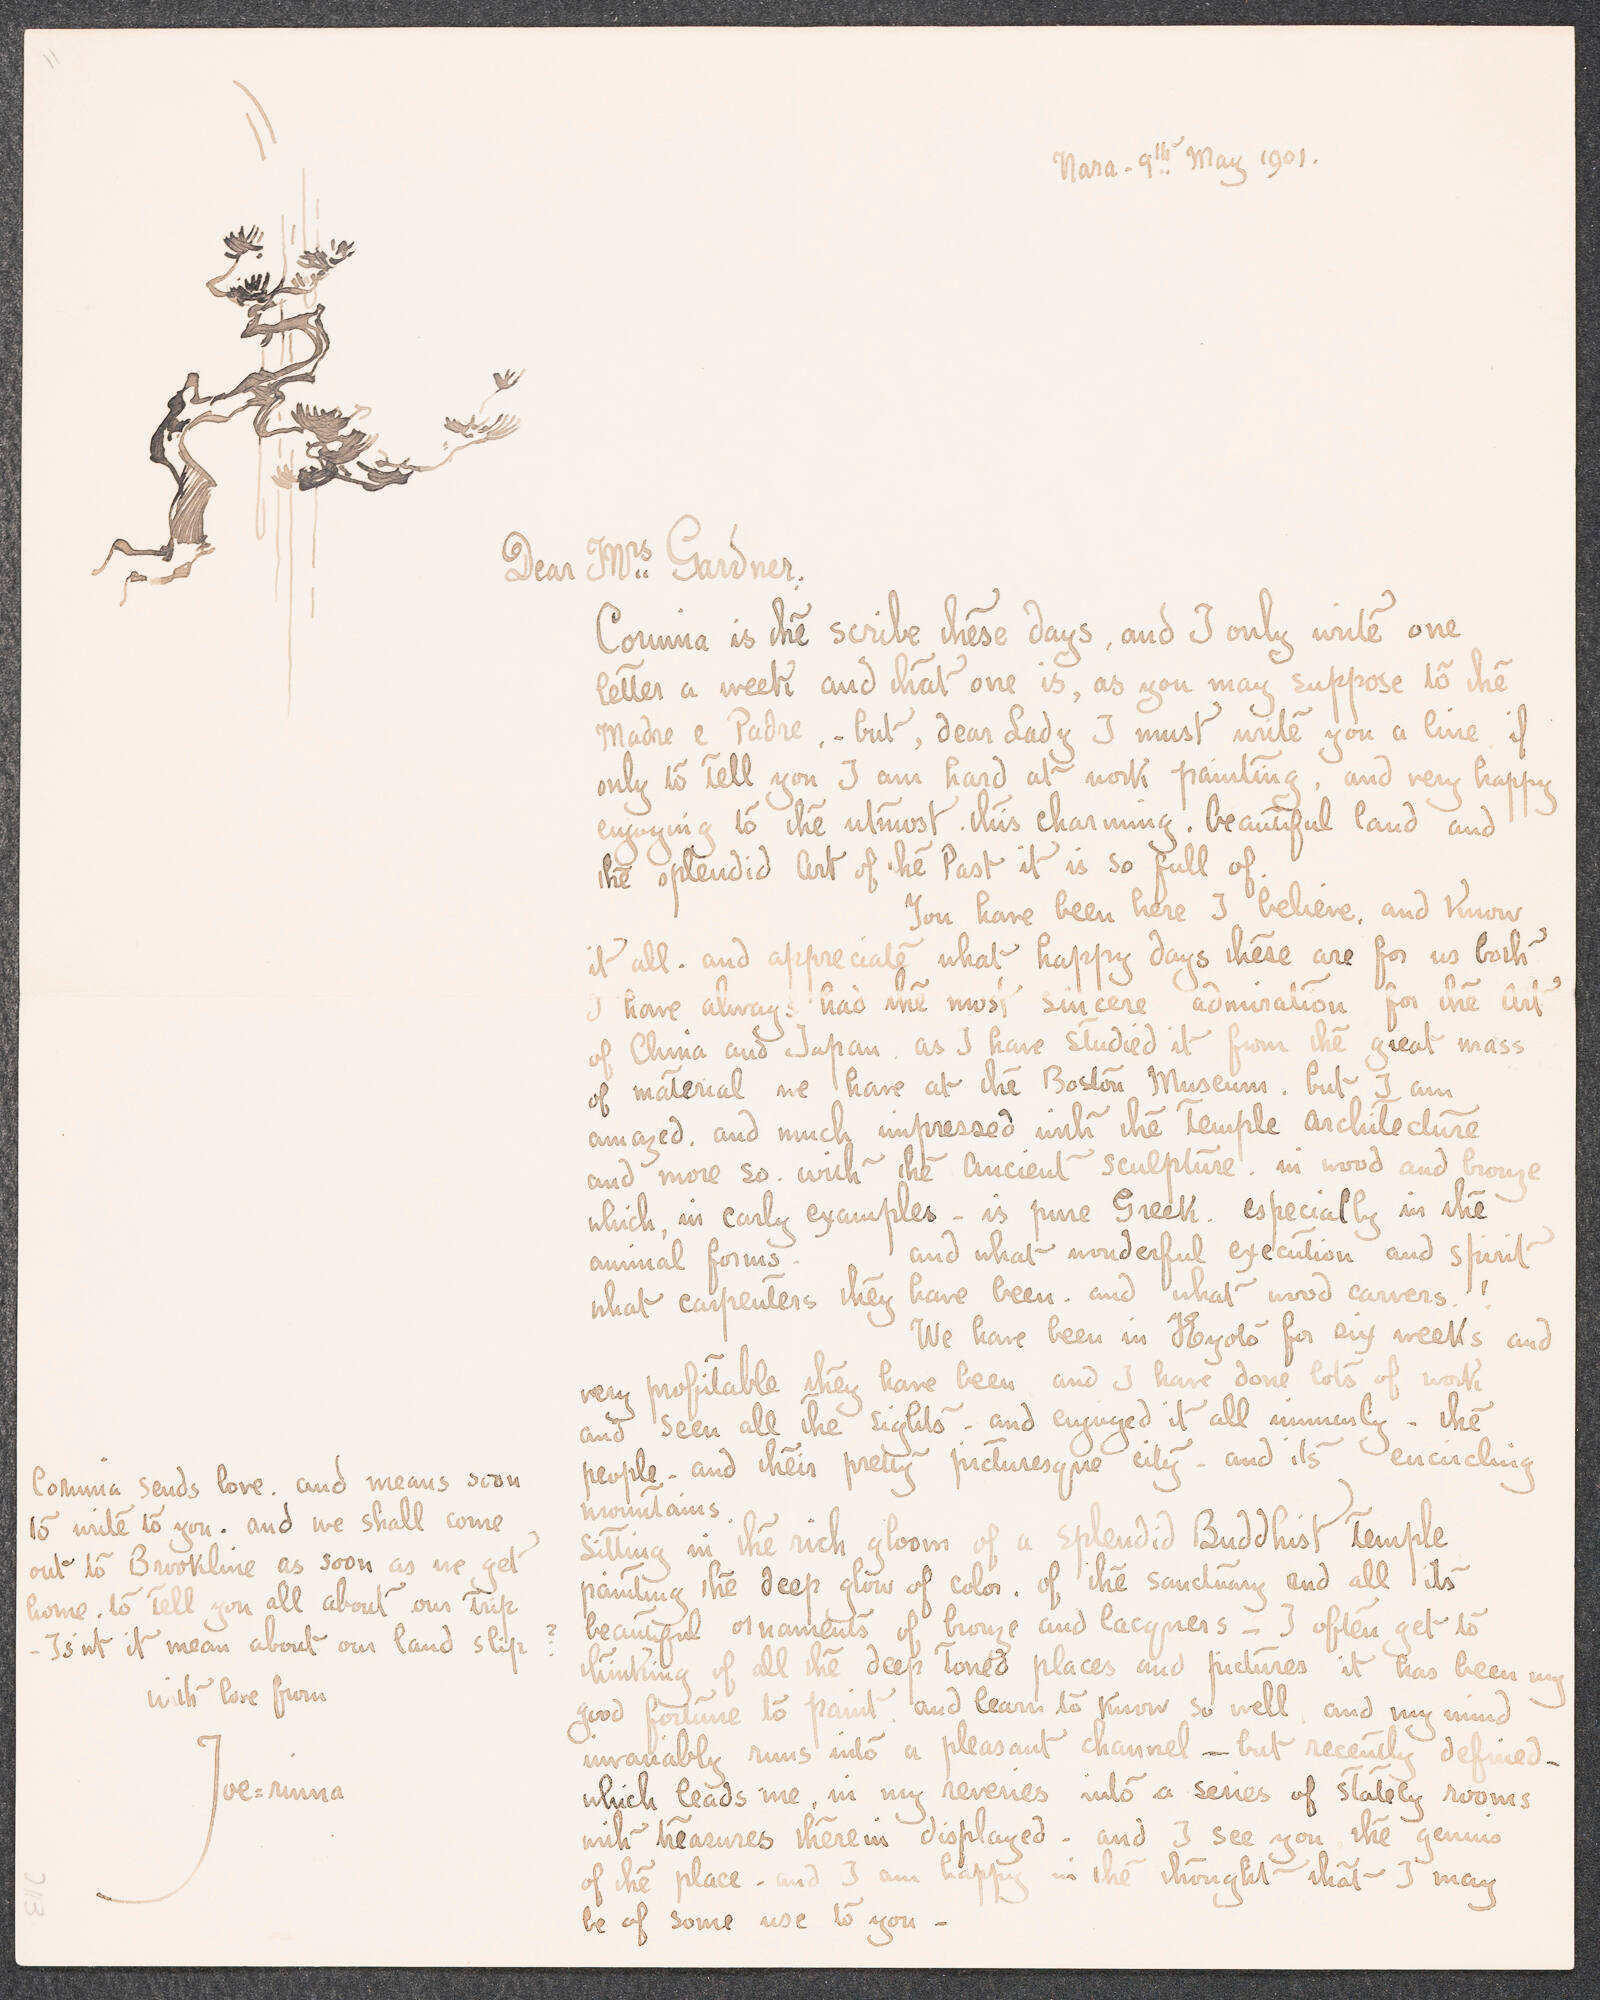 Nara - 9th May 1901.
Dear Mrs Gardner.
Corinna is the scribe these days, and I only write one
letter a week and that one is, as you may suppose to the
Madre e Padre, - but, dear Lady I must write you a line if
only to tell you I am hard at work painting, and very happy
enjoying to the utmost. this charming. beautiful land and
the splendid Art of the Past it is so full of.
You have been here I believe, and know
it all. and appreciate what happy days these are for us both
I have always had the most sincere admiration for the Art
of China and Japan. as I have studied it from the great mass
of material we have at the Boston Museum. but I am
amazed. and much impressed with the Temple architecture
and more so. with the ancient sculpture. in wood and bronze
which, in early examples - is pure Greek. especially in the
animal forms. and what wonderful execution and spirit
what carpenters they have been. and what wood carvers. !
We have been in Kyoto for six weeks and
very profitable they have been and I have done lots of work
and seen all the sights - and enjoyed it all immensly - the
people - and their pretty picturesque city - and its encircling
mountains.
Sitting in the rich gloom of a splendid Buddhist Temple
painting the deep glow of color. of the sanctuary and all its
beautiful ornaments of bronze and lacquers - I often get to
thinking of all the deep toned places and pictures it has been my
good fortune to paint. and learn to know so well and my mind
invariably runs into a pleasant channel - but recently defined -
which leads me, in my reveries into a series of stately rooms
with treasures therein displayed - and I see you the genius
of the place - and I am happy in the thought that I may
be of some use to you -
Corinna sends love. and means soon
to write to you. and we shall come
out to Brookline as soon as we get
home. to tell you all about our trip
- Isnt it mean about our land slip ?
with love from
Joe=rinna